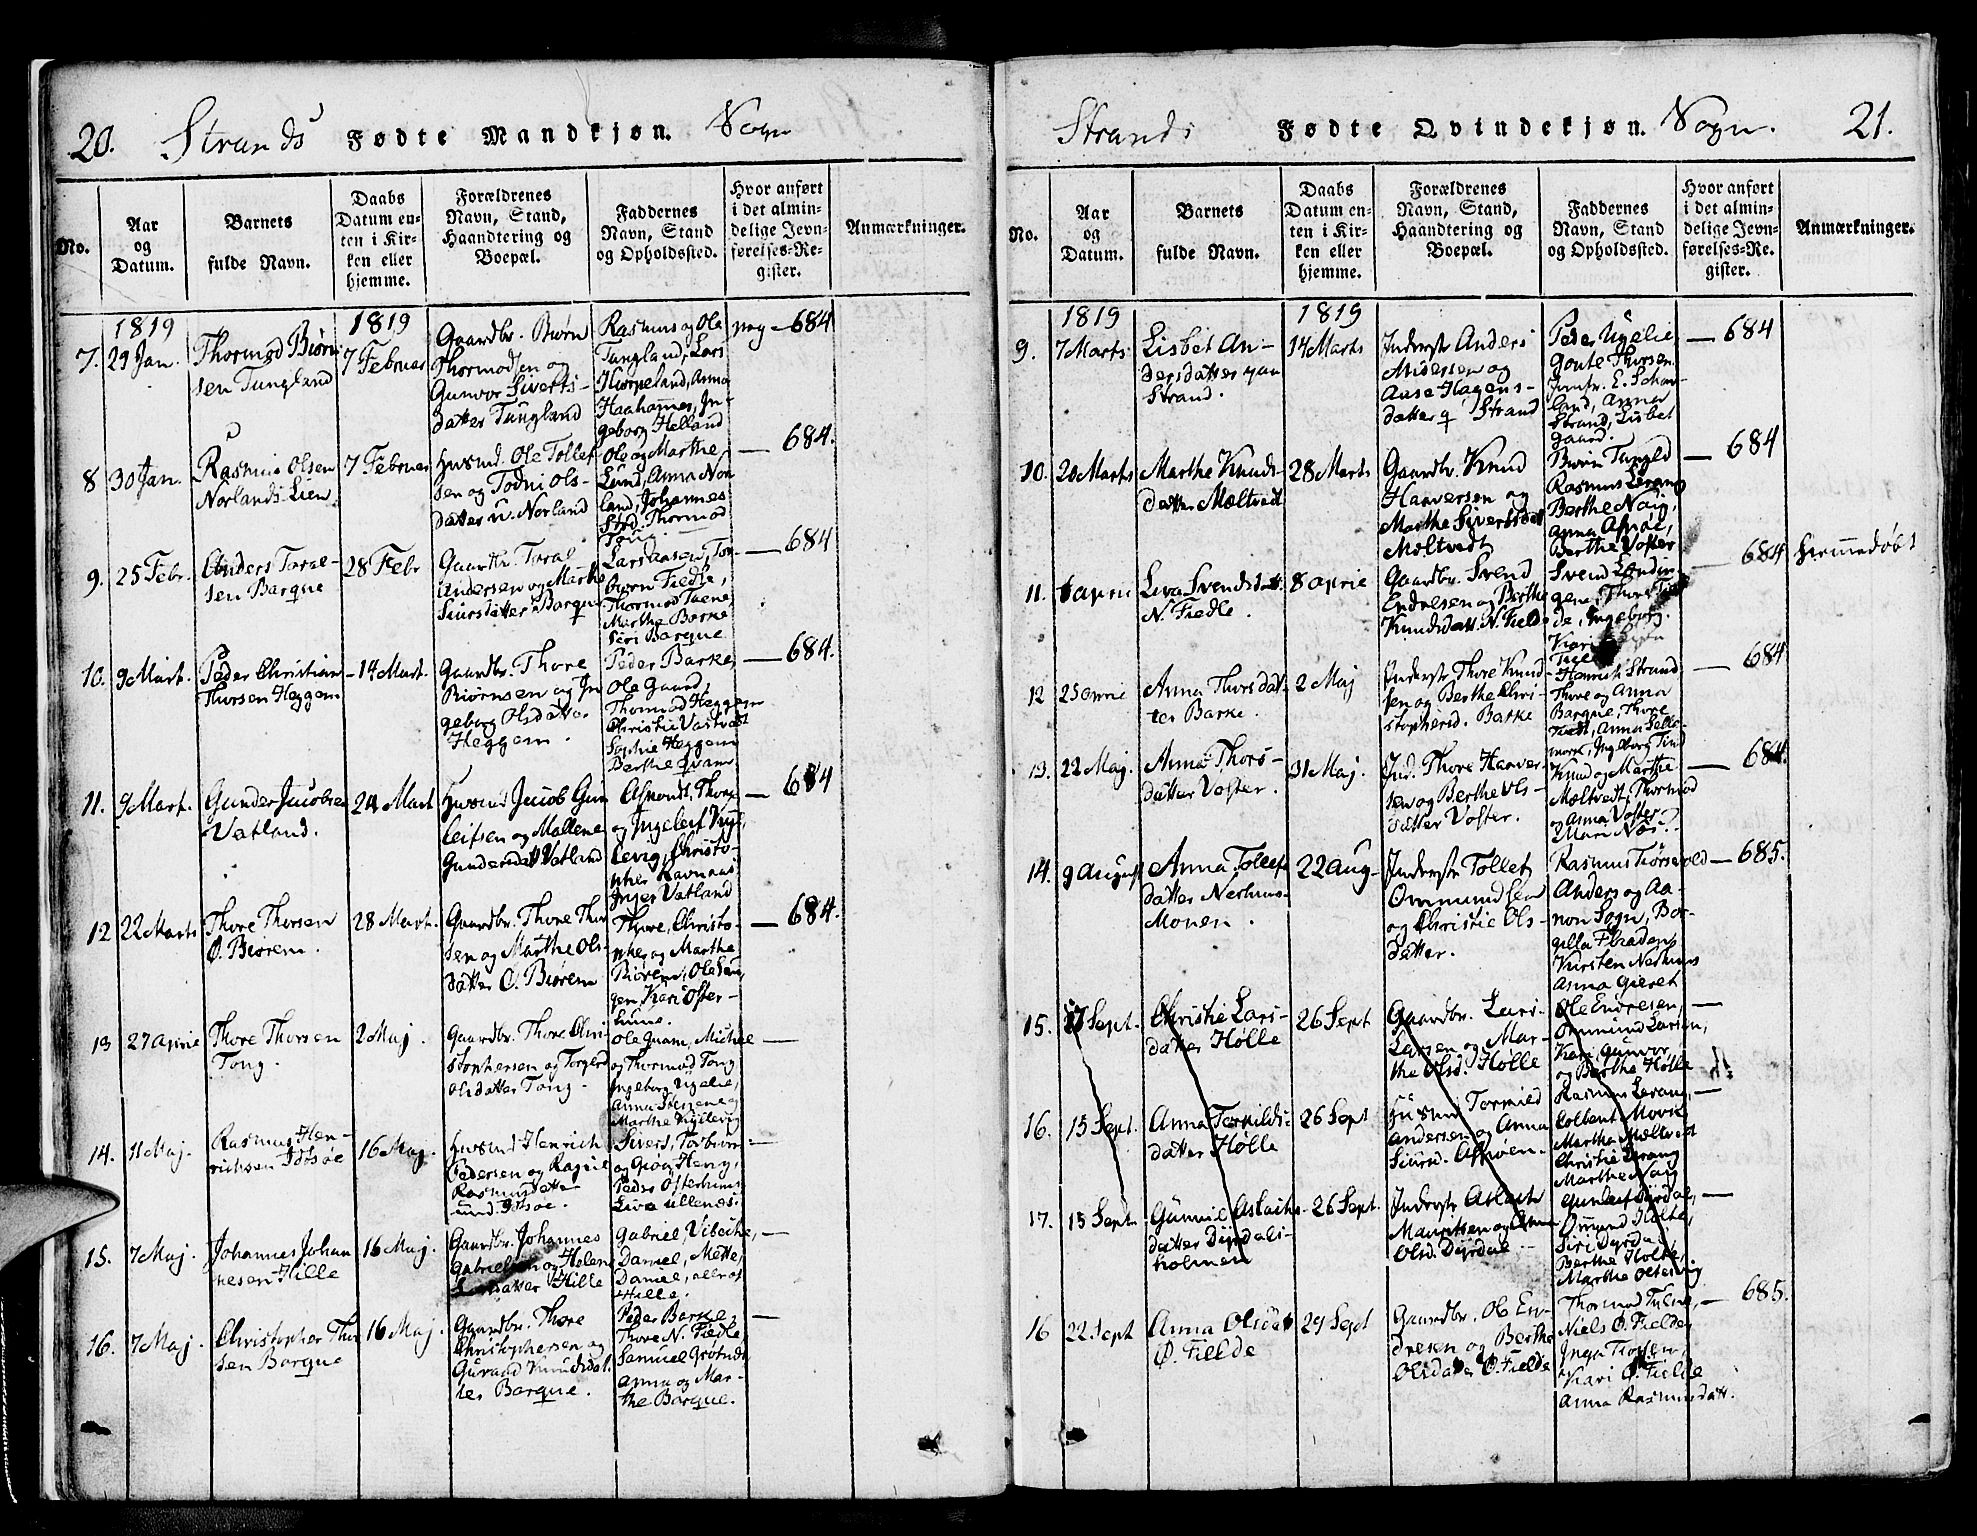 20. Strands Fødte Mandkjøn. Sogn
No.
Aar
og
Datum.
Barnets
fulde Navn.
Daabs
Datum en-
ten i Kir-
ken eller
hjemme.
Forældrenes
Navn, Stand,
Haandtering og
Boepæl.
Faddernes
Navn, Stand
og Opholdssted.
Hvor anført
i det almin-
delige Jevn-
førelses-Re-
gister.
Anmærkninger.
1819
1819
7.
29 Jan.
Thormod Biørn
sen Tungland
7 Februar
Gaardbr. Biørn
Thormodsen og
Gunvor Siverts-
datter Tungland
Rasmus og Ole
Tungland, Lars
Hiorpeland, Anna
Haahamer, In-
geborg Helland
pag - 684
8
30 Jan.
Rasmus Olsen
Norlands Lien
7 Februar
Husmd. Ole Tollef
sen og Todni Ols-
datter u. Norland
Ole og Marthe
Lund, Anna Nor
land, Johannes
Thormod
Tong
684.
9.
25 Febr.
Anders Taral-
sen Barque
28 Febr
Gaardbr. Taral
Andersen og Marthe
Siursdatter Barque
Lars Aasen, Tor-
biørn Fiedle,
Thormod
Marthe Barke
Siri Barque
684
10.
9 Mart.
Peder Christian
Thorsen Heggem
14 Mart.
Gaardbr. Thore
Biørnsen og In
geborg Olsdatter
Heggem.
Peder Barke,
Ole Gaard,
Thormod Heggem
Christie Vastvedt
Sophie Heggem
Berthe Qvam
684.
11.
9 Mart.
Gunder Jacobsen
Vatland.
24 Mart
Husmd Jacob Gun
leifsen og Mallene
Gundersdatt Vatland
Asmondt, Thore
og Ingeleif
Levig, Christo-
pher Ravnaas
Inger Vatland
684
12
22 Marts
Thore Thorsen
Ø. Biørem.
28 Mart.
Gaardbr. Thore Thor
sen og Marthe Ols-
datter Ø. Biørem
Thore, Christo-
pher og Marthe
Biørem, Ole
gen, Kari Øster-
684.
13
27 Aprie
Thore Thorsen
Tong.
2 Maj.
Gaardbr. Thore Chri
stophersen og Torgerd
Olsdatter Tong.
Ole Quam, Michel
og Thormod Tong
Ingeborg Ugelie,
Anna
Marthe
14.
11 Maj.
Rasmus Hen-
richsen Idsøe
16 Maj.
Husmd Henrich
Pedersen og Ragnil
Rasmusdatter
und. Idsøe.
Sivert, Torbiørn
og Heng,
Peder Østerhuus
15.
7 Maj.
Johannes Johan
nesen Hille
16 Maj.
Gaardbr. Johannes
Gabrielsen og Helene
Larsdatter Hille
Gabriel, Vibeche,
Daniel, Mette,
Daniel, alle af
Hille.
16.
7 Maj.
Christopher Thor
sen Barque
16 Maj.
Gaardbr. Thore
Christophersen og
Gurand Knudsdat
ter Barque.
Peder Barke,
Thore N. Fiedle,
Samuel
Anna og Mar-
the Barque.
Strands Fødte Qvindekjøn. Sogn. 21.
No.
Aar
og
Datum.
Barnets
fulde Navn.
Daabs
Datum en-
ten i Kir-
ken eller
hjemme.
Forældrenes
Navn, Stand,
Haandtering og
Boepæl.
Faddernes
Navn, Stand
og Opholdssted.
Hvor anført
i det almin-
delige Jevn-
førelses-Re-
gister.
Anmærkninger.
1819
1819
9.
7 Marts
Lisbet An-
dersdatter paa
Strand.
14 Marts
Inderstr Anders
Midessen og
Aase Hagens-
datter Strand
Peder Ugelie
Goute Thorsen
Jomfr. E. Schar-
land, Anna
Strand, Lisbet
Gaard.
684
10.
20 Marts
Marthe Knuds-
datter Mæltvedt
28 Marts
Gaardbr. Knud
Haaversen og
Marthe Sivertsdat
Mæltvedt
Biørn Tungld
Rasmus Lerang
Berthe Naig,
Anna
Berthe Voster
684
11.
6 Aprie
Liva Svendsdatt.
N. Fiedle.
8 Aprie
Gaardbr. Svend
Endresen og Berthe
Knudsdatt. N. Fielde
Svend
gene, Thore Fiel
de, Ingeborg
Kari
684
Hiemmedøbt
12
25 Aprie
Anna Thorsdat-
ter Barke.
2 Maj
Inderstr Thore Knud
sen og Berthe Chri-
stopherd. Barke
Henrich Strand
Thore og Anna
Barque, Thore
Anna
Ingeborg
684
13.
22 Maj.
Anna Thors-
datter Voster.
31 Maj.
Ind. Thore Haaver-
sen og Berthe Ols-
datter Voster.
Knud og Marthe
Mæltvedt, Thormod
og Anna Voster
Mari
684.
14.
9 August
Anna Tollefs
datter Nerhuus-
Monen.
22 Aug
Inderstr Tollef
Ommundsen
og Christie Ols-
datter.
Rasmus
Anders og Aa-
non Sogn, Bor-
gilla
Kirsten Nerhuus
Anna
685.
15.
17 Sept.
Christie Lars-
datter Hølle
26 Sept
Gaardbr. Lars-
Larsen og Mar-
the Olsd. Hølle
Ole Endresen,
Ommund Larsen,
Kari Gunvor,
og Berthe Hølle
16.
15 Sept.
Anna Torkilds-
datter Hølle
26 Sept
Husmd Tormild
Andersen og Anna
Siursd.
Rasmus Lerang,
Colbent
Martha Mæltvedt
Christie Lerang
Marthe Naig
17.
15 Sept
Gunnil Aslachs-
datter Dyrdals-
holmen
26 Sept.
Inderstr Aslach
Mauritsen og
Olsd. Dyrdal
Gunlef Dyrdal,
Ommund Holte,
Siri Dyrdal
Berthe Holte,
Marthe
16
22 Sept
Anna Olsdat
Ø. Fielde
29 Sept
Gaardbr. Ole En-
dresen og Berthe
Olsdatter Ø. Fielde
Thormod
Niels Ø. Fielde,
Inga
Kari Ø. Fielde
Anna Rasmusdatt.
685.